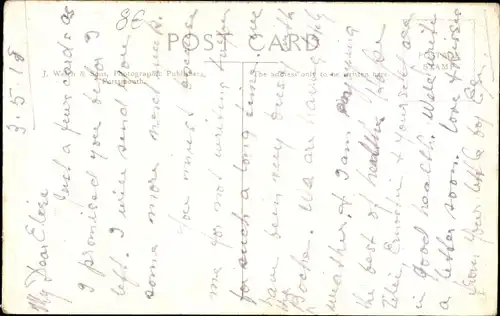 86
POST CARD
J. W. & Sons, Photographic Publishers,
Portsmouth.
The address only to be written here
STAMP
3.5.18
My Dear Elsie
Just a few cards as
I promised you before I
left. I will send you
some more next week.
You must excuse
me for not writing
for such a long time. I
have been very busy with
We are having
weather. & I am enjoying
the best of health. I hope
& yourself are
in good health. Well write
a letter soon. love & kisses
from your little boy